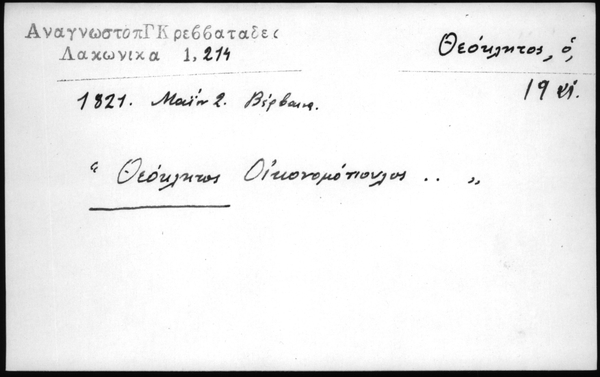 ΑναγνωστοπΓΚρεββαταδες
Λακωνικα 1, 214
Θεόκλητος, ὁ,
19 αἰ.
1821. Μαΐου 2. Βέρβαινα.
“ Θεόκλητος Οἰκονομόπουλος .. „